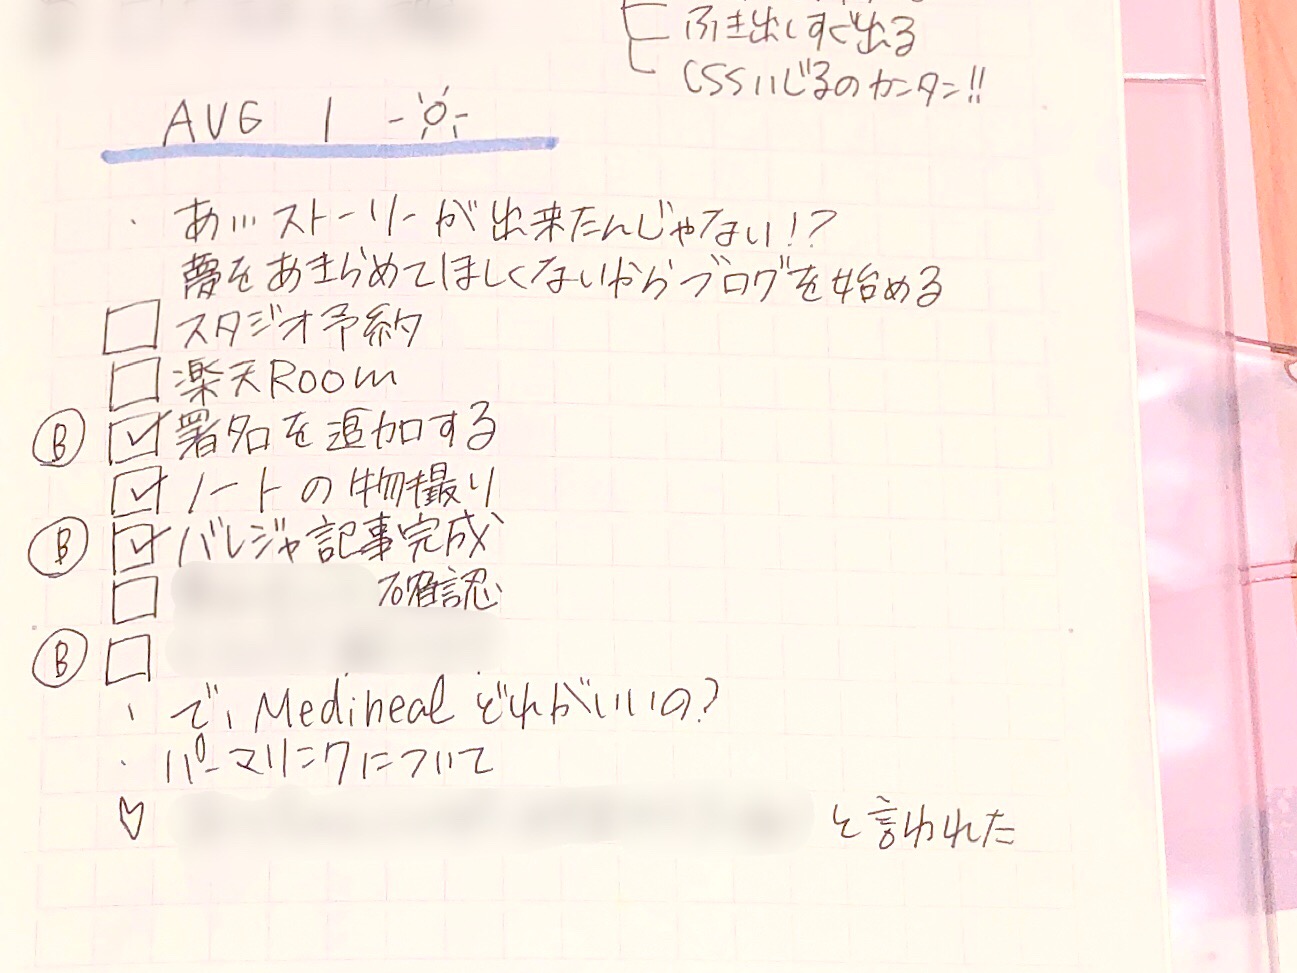 ふき出しすぐ出る
CSSいじるのカンタン!!
AUG 1
・ あ… ストーリーが出来たんじゃない!?
夢をあきらめてほしくないからブログを始める
スタジオ予約
楽天Room
B 署名を追加する
ノートの物撮り
B バレジャ記事完成
確認
B
・ で、Mediheal どれがいいの?
・ パーマリンクについて
♡ と言われた